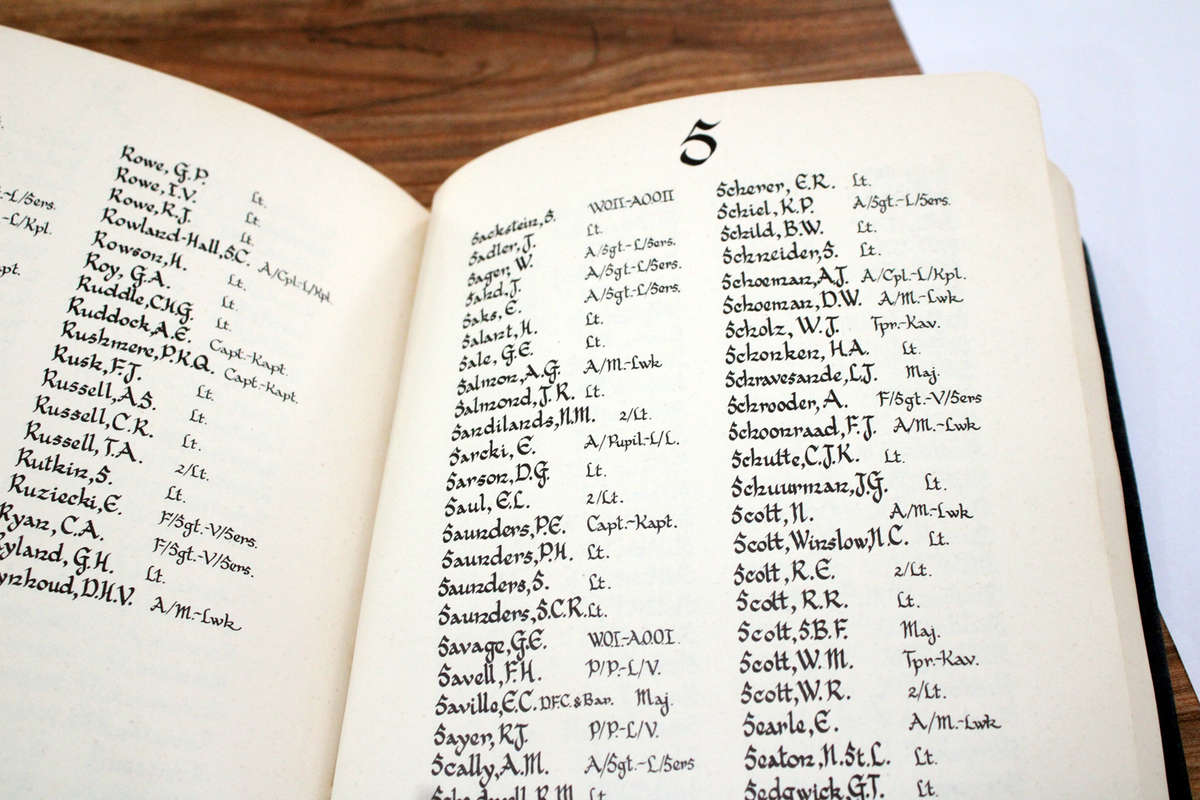 -L/Sers.
-L/Kpl.
pt.
Rowe, G.P. Lt.
Rowe, I.V. Lt.
Rowe, R.J. Lt.
Rowland-Hall, S.C. A/Cpl.-L/Kpl.
Rowson, H. Lt.
Roy, G.A. Lt.
Ruddle, C.H.G. Lt.
Ruddock, A.E. Capt.-Kapt.
Rushmere, P.K.Q. Capt.-Kapt.
Rusk, F.J. Lt.
Russell, A.S. Lt.
Russell, C.R. Lt.
Russell, T.A. 2/Lt.
Rutkin, S. Lt.
Ruziecki, E. F/Sgt.-V/Sers.
Ryan, C.A. F/Sgt.-V/Sers.
yland, G.H. Lt.
ynhoud, D.H.V. A/M.-Lwk
S
Sackstein, S. WOII-AOOII
Sadler, J. Lt.
Sager, W. A/Sgt.-L/Sers.
Sahd, J. A/Sgt.-L/Sers.
Saks, E. A/Sgt.-L/Sers.
Salant, H. Lt.
Sale, G.E. Lt.
Salmon, A.G. A/M.-Lwk
Salmond, J.R. Lt.
Sandilands, N.M. 2/Lt.
Sarcki, E. A/Pupil-L/L.
Sarson, D.G. Lt.
Saul, E.L. 2/Lt.
Saunders, P.E. Capt.-Kapt.
Saunders, P.H. Lt.
Saunders, S. Lt.
Saunders, S.C.R. Lt.
Savage, G.E. WOI.-AOOI.
Savell, F.H. P/P.-L/V.
Saville, E.C. D.F.C. & Bar. Maj.
Sayer, R.J. P/P.-L/V.
Scally, A.M. A/Sgt.-L/Sers
R.M. Lt
Scherer, E.R. Lt.
Schiel, K.P. A/Sgt.-L/Sers.
Schild, B.W. Lt.
Schneider, S. Lt.
Schoeman, A.J. A/Cpl.-L/Kpl.
Schoeman, D.W. A/M.-Lwk
Scholz, W.J. Tpr.-Kav.
Schonken, H.A. Lt.
Schravesande, L.J. Maj.
Schrooder, A. F/Sgt.-V/Sers
Schoonraad, F.J. A/M.-Lwk
Schutte, C.J.K. Lt.
Schuurman, J.G. Lt.
Scott, N. A/M.-Lwk
Scott, Winslow, N.C. Lt.
Scott, R.E. 2/Lt.
Scott, R.R. Lt.
Scott, S.B.F. Maj.
Scott, W.M. Tpr.-Kav.
Scott, W.R. 2/Lt.
Searle, E. A/M.-Lwk
Seaton, N.St.L. Lt.
Sedgwick, G.T. Lt.